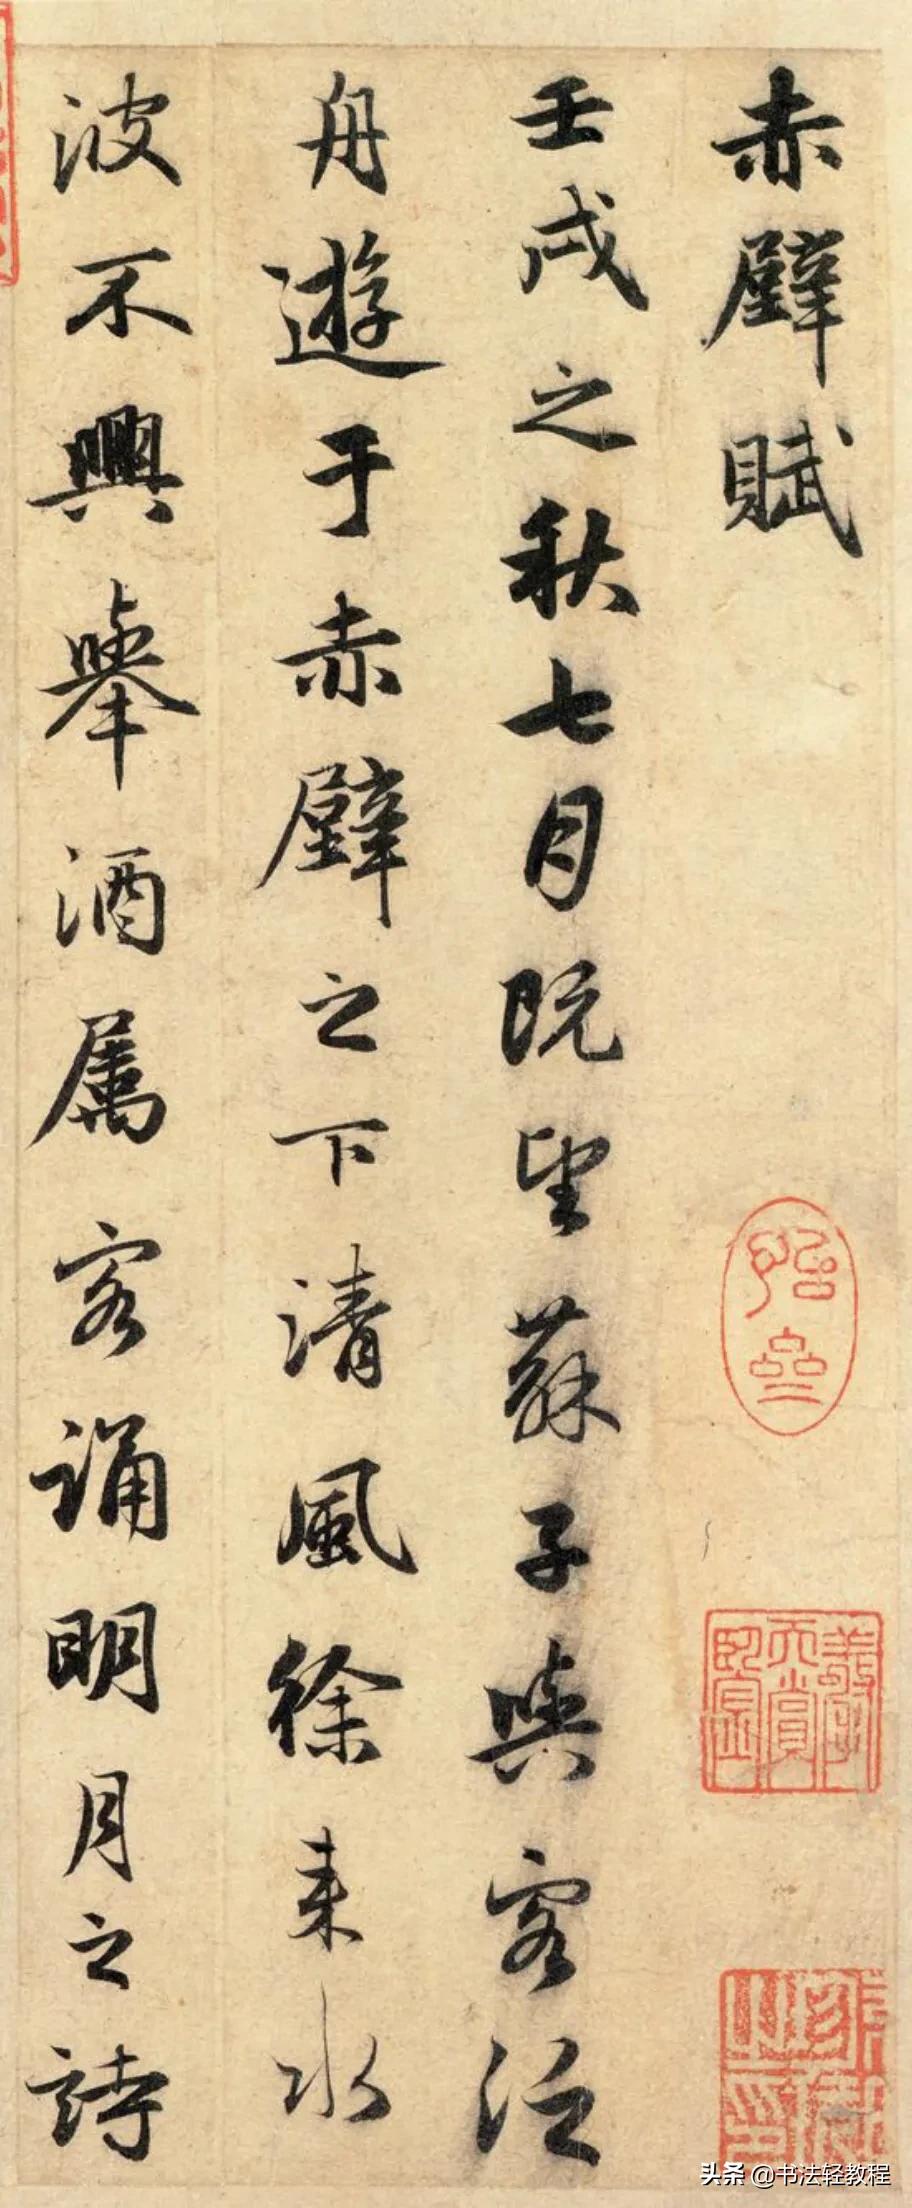 赤壁賦
壬戌之秋七月既望蘇子與客泛
舟遊于赤壁之下清風徐来水
波不興舉酒属客誦明月之詩
头条 @书法轻教程